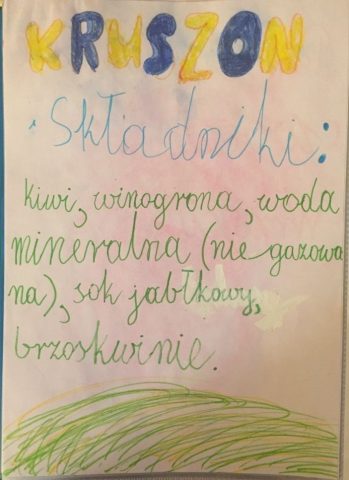 KRUSZON
Składniki:
kiwi, winogrona, woda
mineralna (nie gazowa
na), sok jabłkowy,
brzoskwinie.